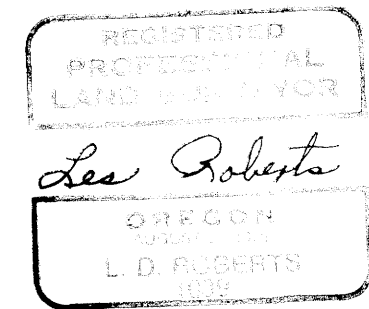 REGISTERED
PROFESSIONAL
LAND SURVEYOR
Les Roberts
OREGON
L. D. ROBERTS
1039